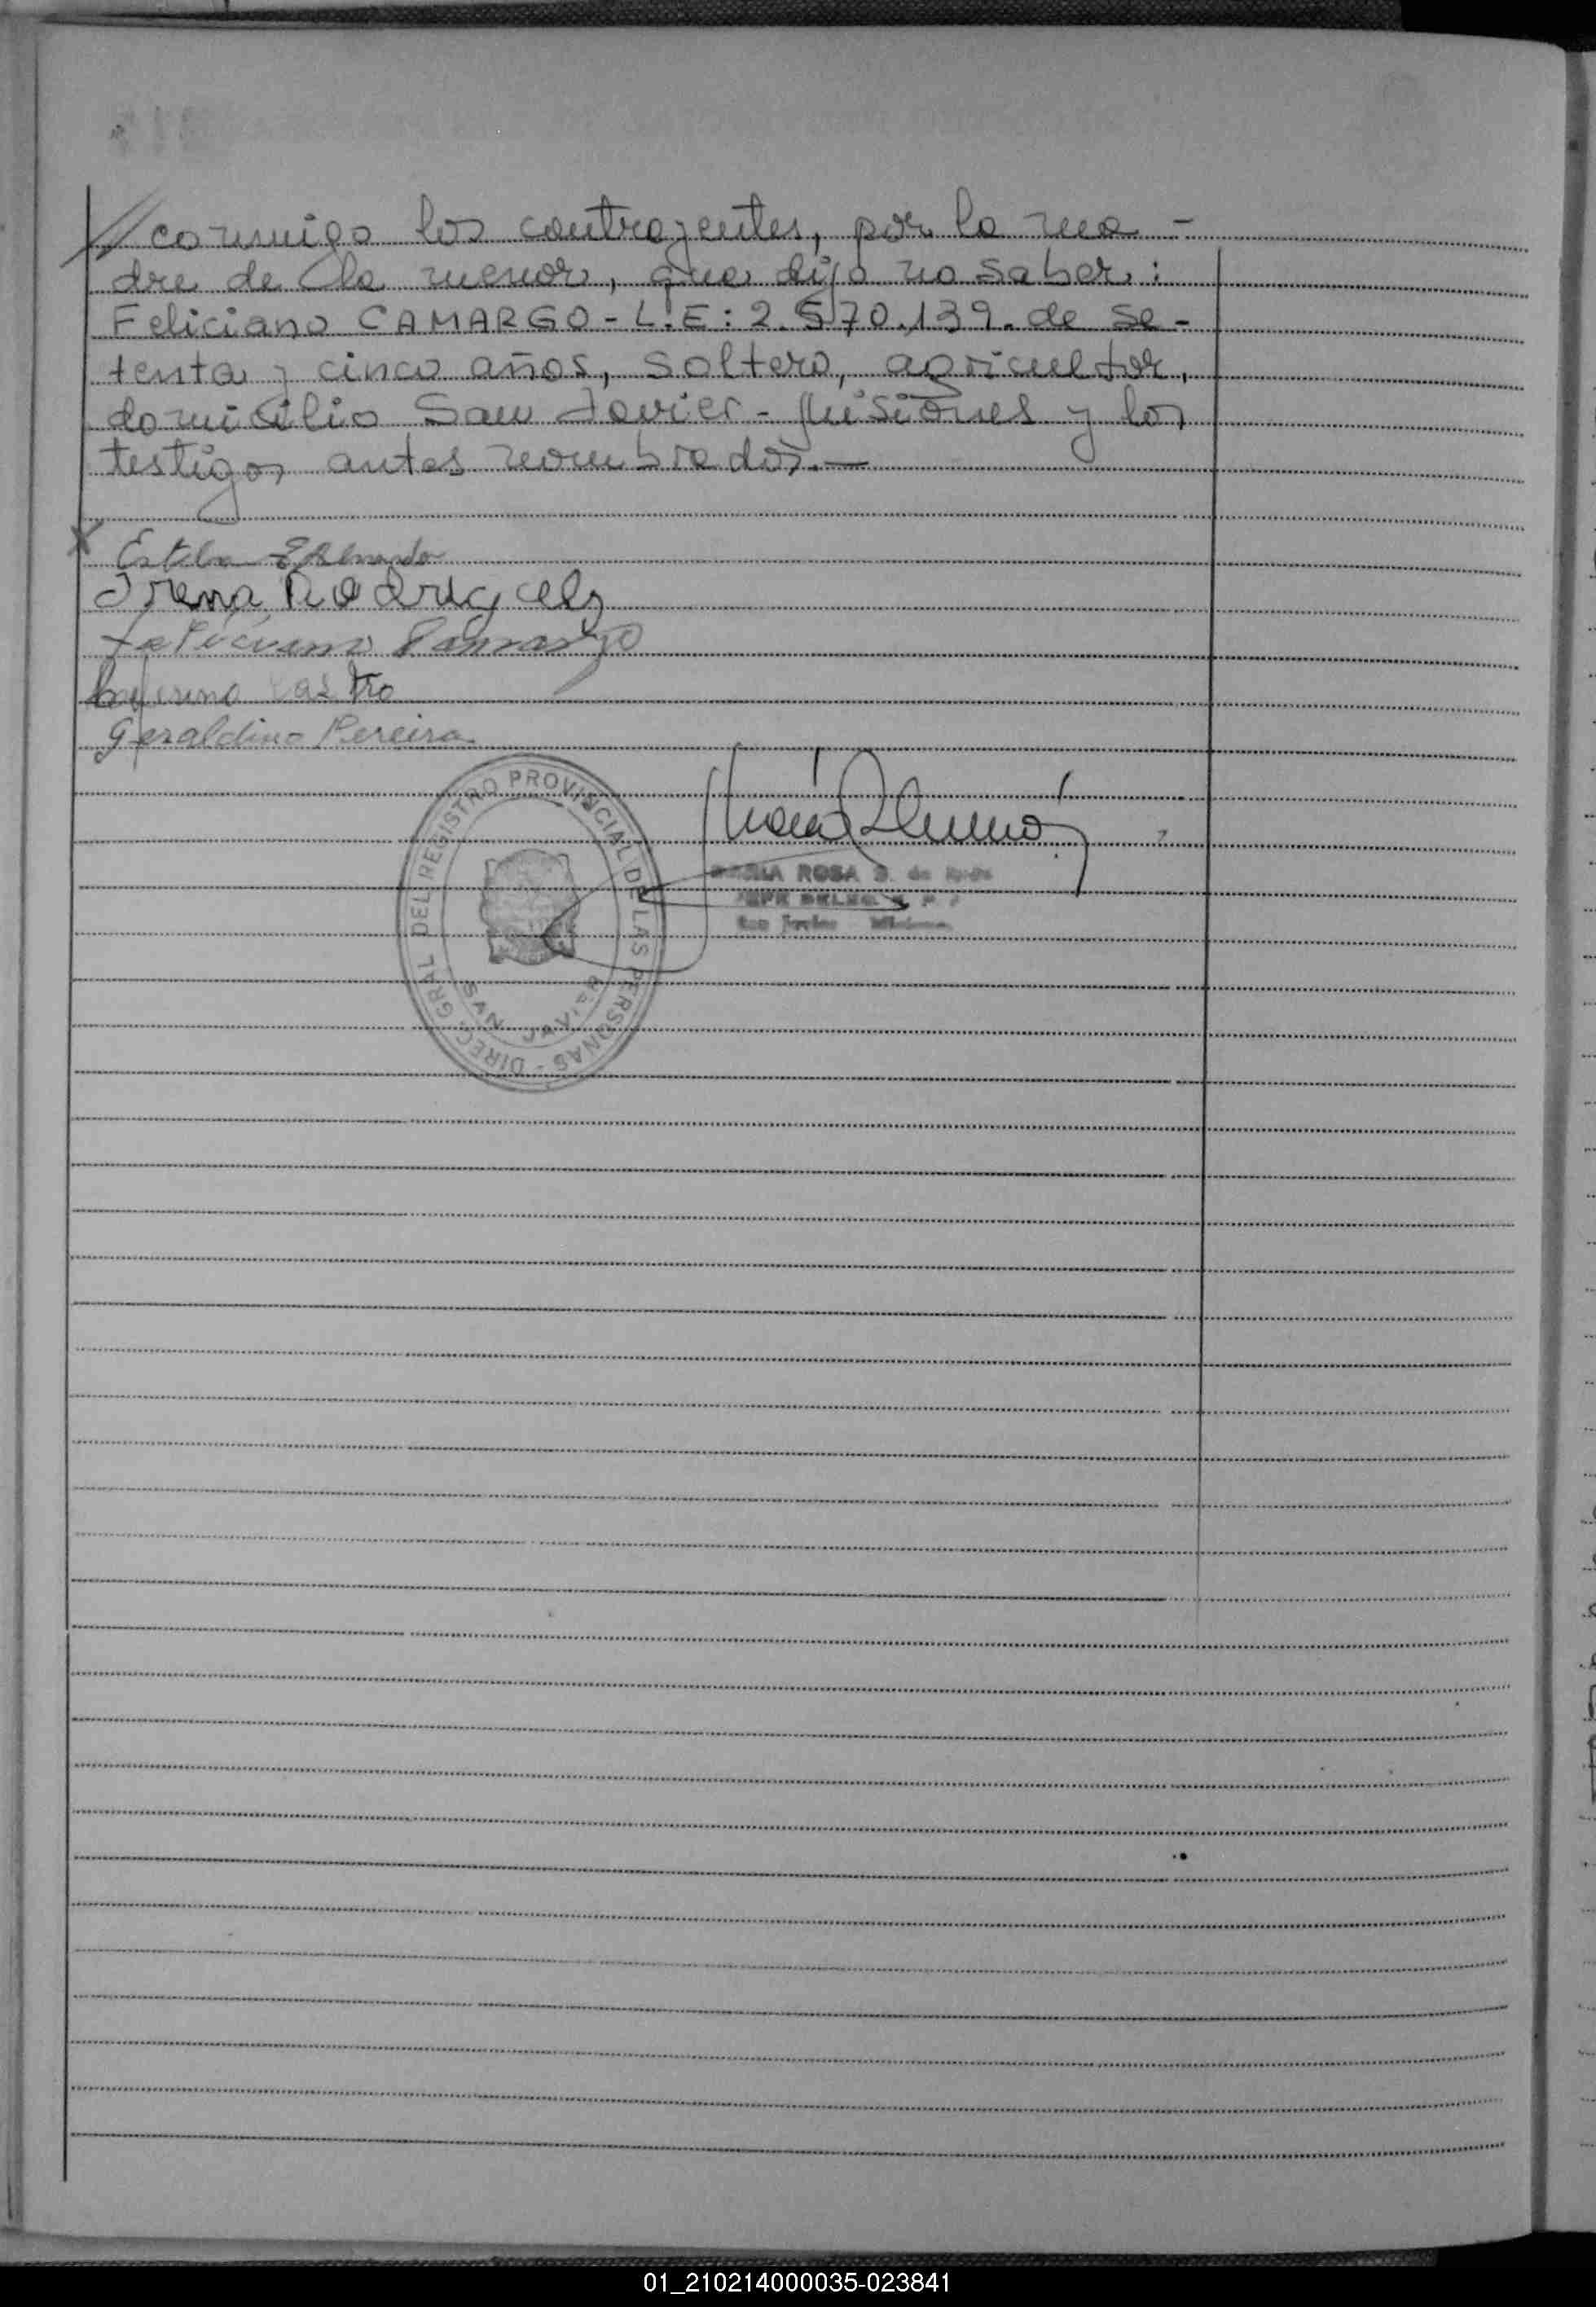 // conmigo los contrayentes, por la ma-
dre de la menor, que dijo no saber:
Feliciano CAMARGO - L.E: 2.570.139. de se-
tenta y cinco años, soltero, agricultor,
domicilio San Javier - Misiones y los
testigos antes nombrados.—
X
Irena Rodriguez
Feliciano Camargo
Castro
Geraldino Pereira
DIREC. GRAL DEL REGISTRO PROVINCIAL DE LAS PERSONAS -
SAN JAVIER
MARIA ROSA S. de
JEFE DELEG.
San Javier Misiones
01_210214000035-023841